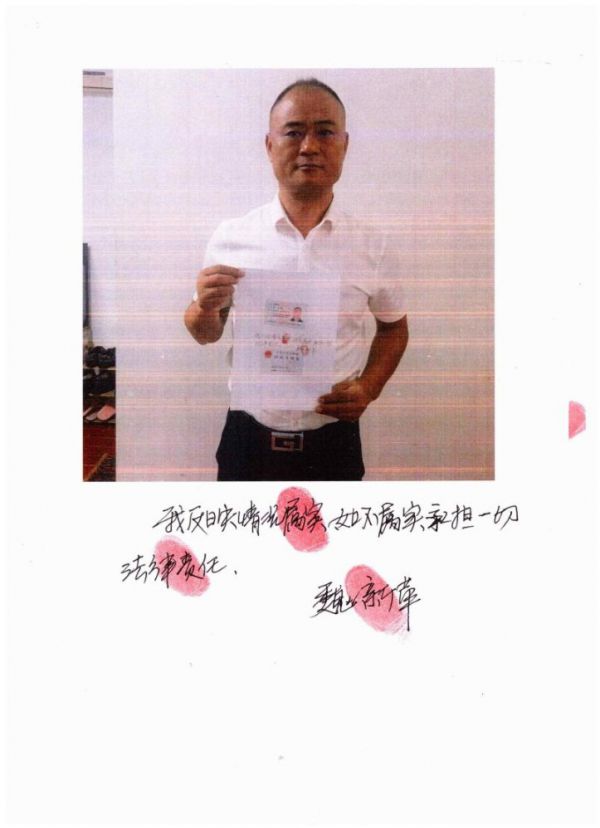 我反映情况属实,如不属实承担一切
法律责任.
魏新革